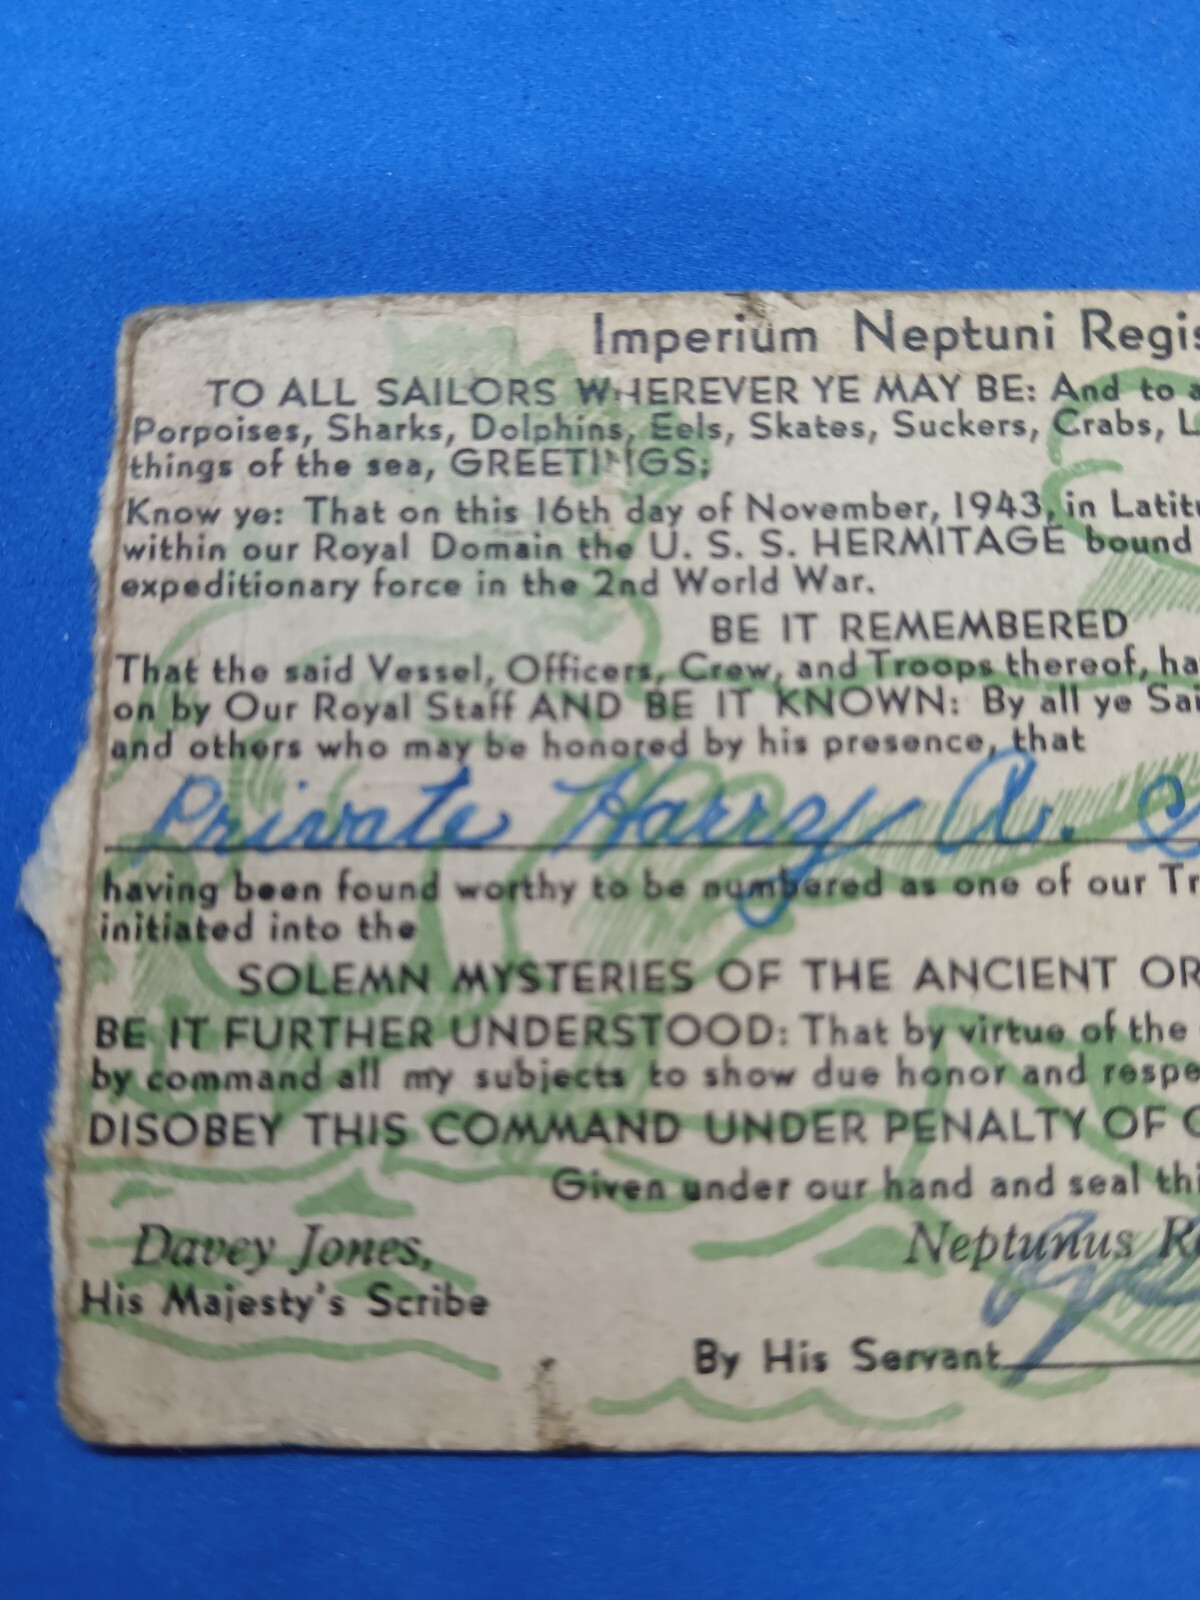 Imperium Neptuni Regis
TO ALL SAILORS WHEREVER YE MAY BE: And to a
Porpoises, Sharks, Dolphins, Eels, Skates, Suckers, Crabs, L
things of the sea, GREETINGS;
Know ye: That on this 16th day of November, 1943, in Latitu
within our Royal Domain the U. S. S. HERMITAGE bound
expeditionary force in the 2nd World War.
BE IT REMEMBERED
That the said Vessel, Officers, Crew, and Troops thereof, ha
on by Our Royal Staff AND BE IT KNOWN: By all ye Sa
and others who may be honored by his presence, that
Private Harry A. C
having been found worthy to be numbered as one of our Tr
initiated into the
SOLEMN MYSTERIES OF THE ANCIENT OR
BE IT FURTHER UNDERSTOOD: That by virtue of the
by command all my subjects to show due honor and respe
DISOBEY THIS COMMAND UNDER PENALTY OF
Given under our hand and seal thi
Davey Jones,
Neptunus Re
His Majesty's Scribe
By His Servant